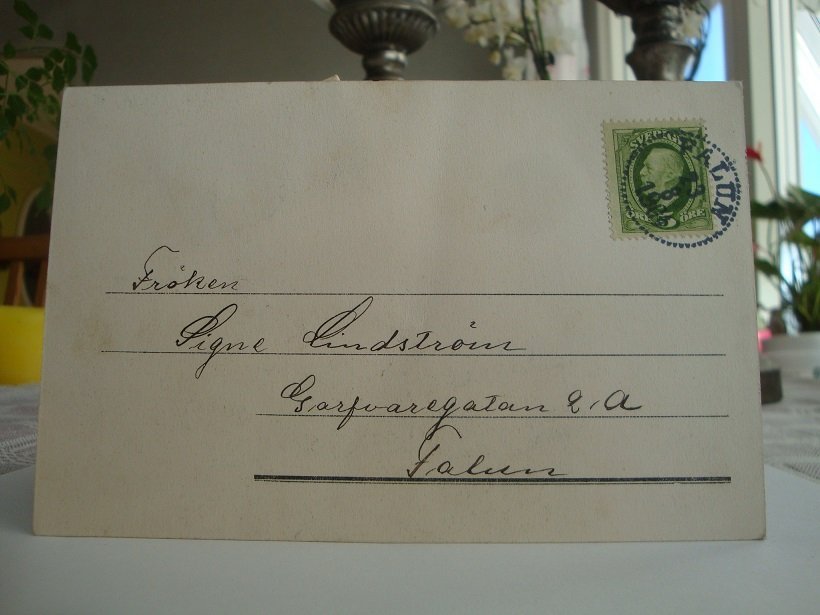 SVERIGE
5
ÖRE ÖRE
FALUN
Fröken
Signe Lindström
Garfvaregatan 2, A
Falun